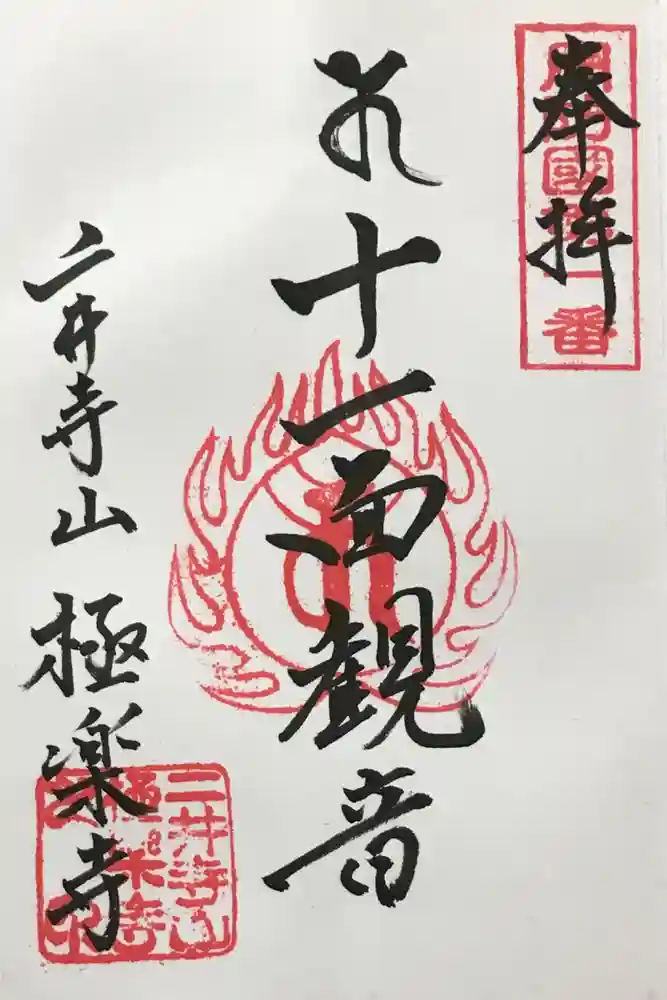 奉拝
周防國第一番
十一面観音
二井寺山 極楽寺
二井寺山
極楽寺